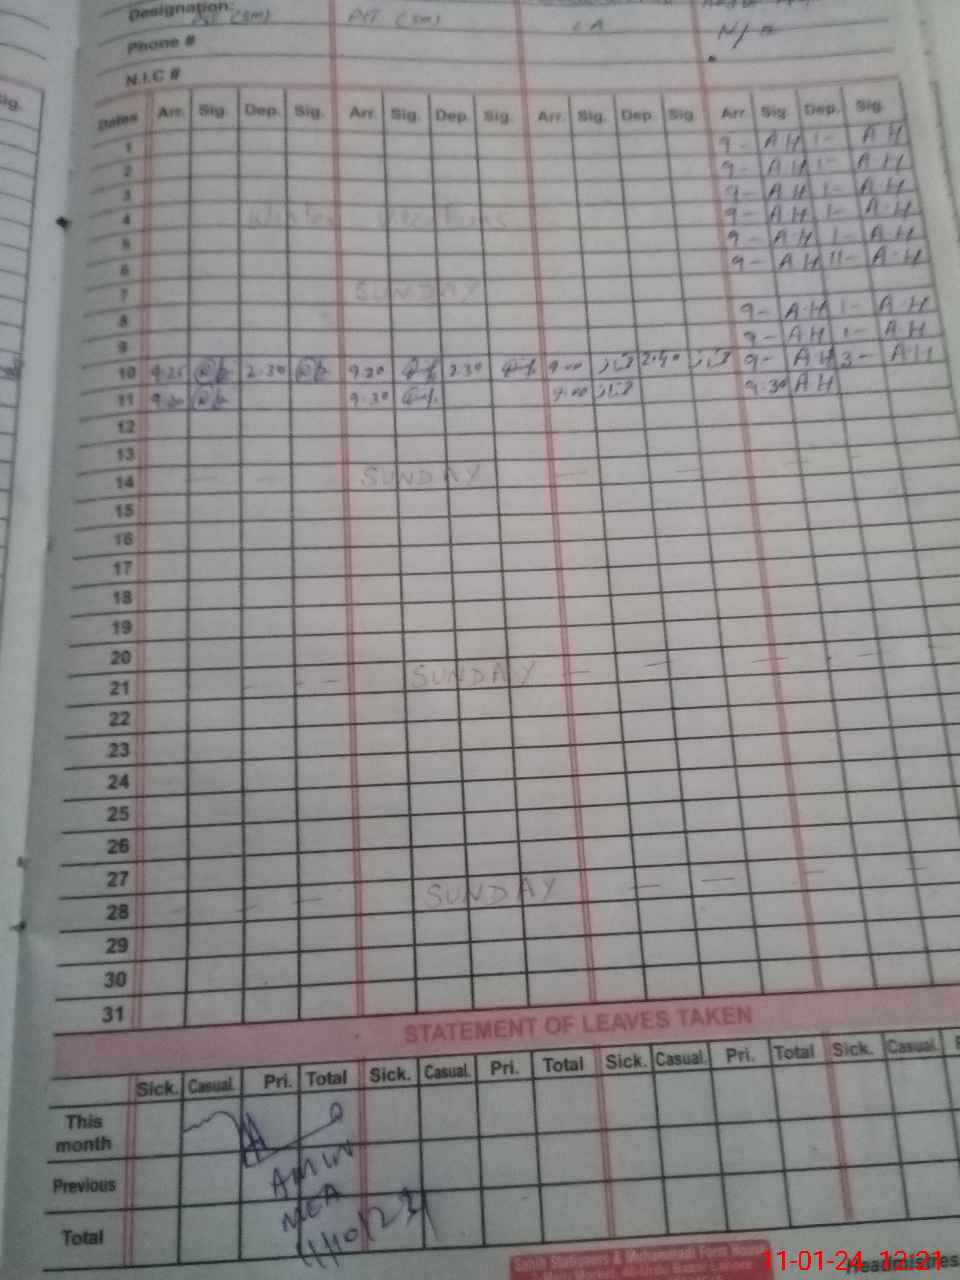 Designation: PST (SM) PST (SM) LA
Phone # N/A
N.I.C #
Dates Arr. Sig. Dep. Sig. Arr. Sig. Dep. Sig. Arr. Sig. Dep. Sig. Arr. Sig. Dep. Sig.
1 9- AH 1- AH
2 9- AH 1- AH
3 9- AH 1- AH
4 Winter Vacations 9- AH 1- AH
5 9- AH 1- AH
6 9- AH 11- AH
7 SUNDAY
8 9- AH 1- AH
9 9- AH 1- AH
10 9.25 2.30 9.20 2.30 9.00 2.40 9- AH 3- AH
11 9.30 9.30 9.00 9.30 AH
12
13
14 SUNDAY
15
16
17
18
19
20
21 SUNDAY
22
23
24
25
26
27
28 SUNDAY
29
30
31
STATEMENT OF LEAVES TAKEN
Sick. Casual. Pri. Total Sick. Casual. Pri. Total Sick. Casual. Pri. Total Sick. Casual.
This month
Previous
Total
AMIN
MEA
11-01-24 12:21
Headmistres